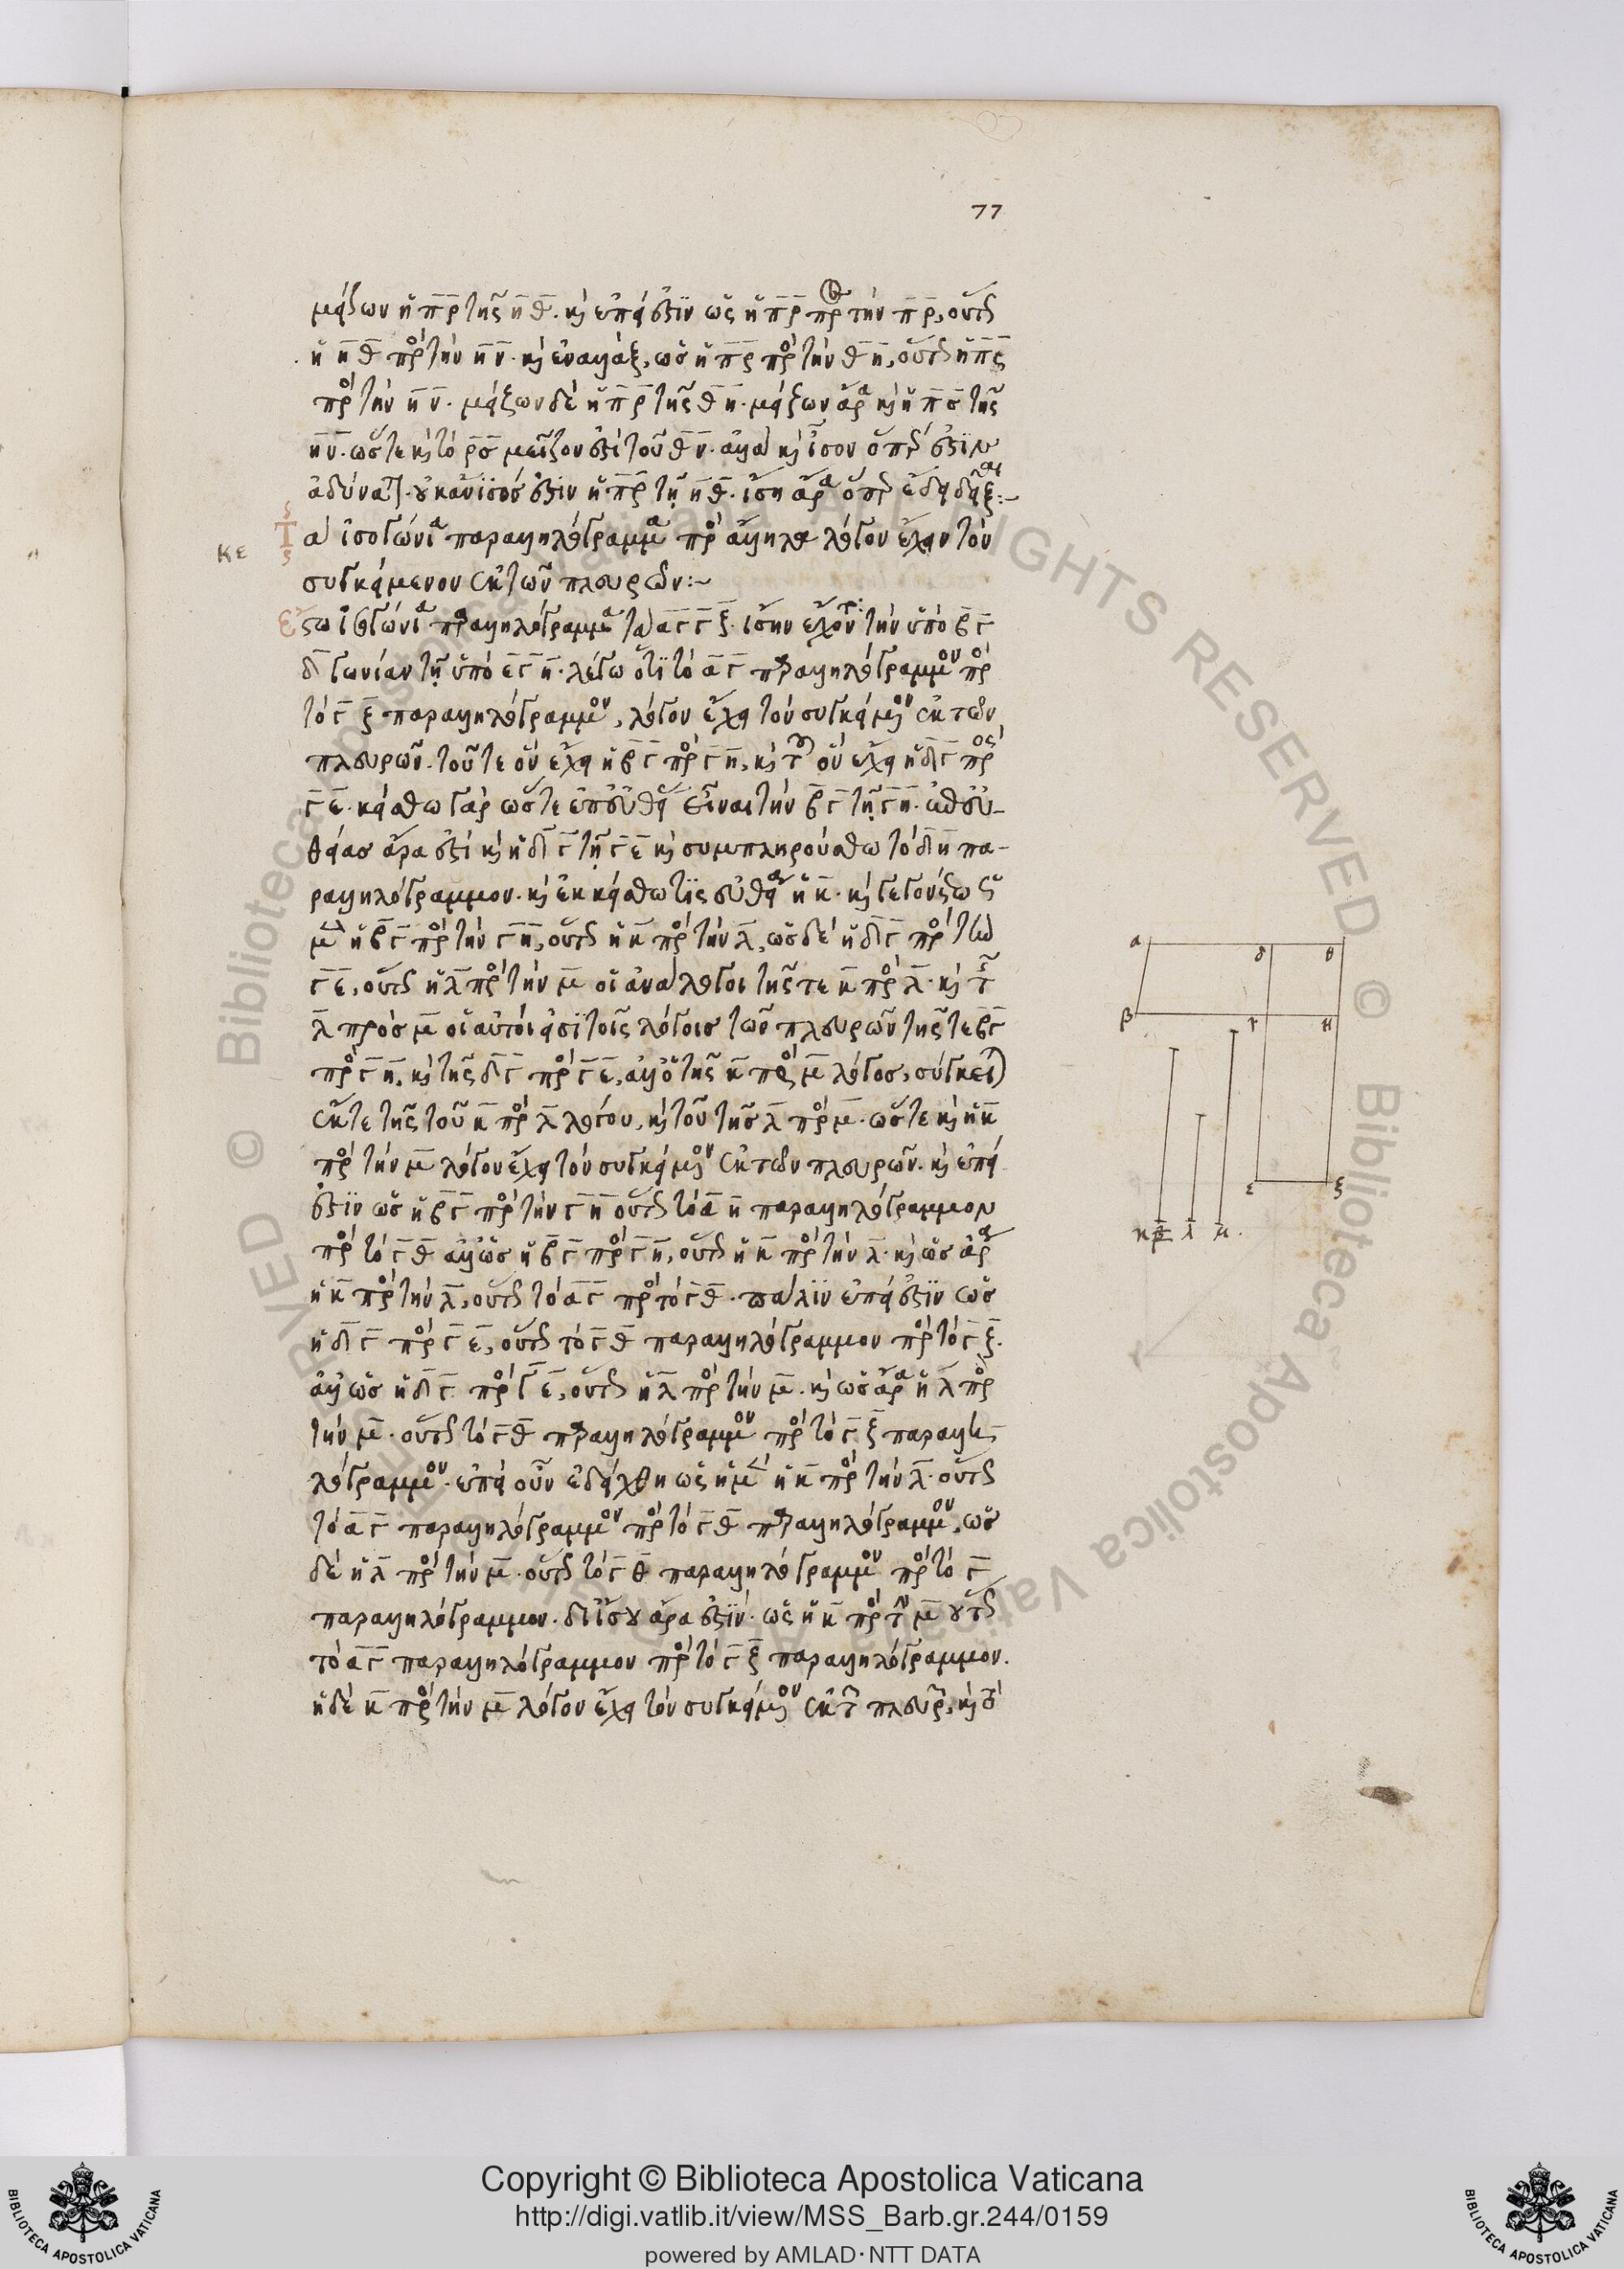 77
μείζων ἡ π̅ρ̅ τῆς η̅θ̅. καὶ ἐπεί ἐστιν ὡς ἡ π̅ρ̅ πρ τὴν π̅ρ̅, οὕτως
ἡ η̅θ̅ πρὸς τὴν η̅ν̅. καὶ ἐναλλάξ, ὡς ἡ π̅ρ̅ πρὸς τὴν θ̅η̅, οὕτως ἡ π̅ς̅
πρὸς τὴν η̅ν̅. μείζων δὲ ἡ π̅ρ̅ τῆς θ̅η̅. μείζων ἄρα καὶ ἡ π̅σ̅ τῆς
η̅ν̅. ὥστε καὶ τὸ ρ̅σ̅ μεῖζον ἐστὶ τοῦ θ̅ν̅. ἀλλὰ καὶ ἴσον ὅπερ ἐστὶν
ἀδύνατον. οὐκ ἄνισός ἐστιν ἡ π̅ρ̅ τῇ η̅θ̅. ἴση ἄρα ὅπερ ἔδει δεῖξαι:~
κε
Τὰ ἰσογώνια παραλληλόγραμμα πρὸς ἄλληλα λόγον ἔχει τὸν
συγκείμενον ἐκ τῶν πλευρῶν:~
Ἔστω ἰσογώνια παραλληλόγραμμα τὰ α̅γ̅ γ̅ξ̅. ἴσην ἔχοντα τὴν ὑπὸ β̅γ̅
δ̅ γωνίαν τῇ ὑπὸ ε̅γ̅η̅. λέγω ὅτι τὸ α̅γ̅ παραλληλόγραμμον πρὸς
τὸ γ̅ξ̅ παραλληλόγραμμον, λόγον ἔχει τὸν συγκείμενον ἐκ τῶν
πλευρῶν. τοῦτε ὃν ἔχει ἡ β̅γ̅ πρὸς γ̅η̅, καὶ τοῦ ὃν ἔχει ἡ δ̅γ̅ πρὸς
γ̅ε̅. κείσθω γὰρ ὥστε ἐπευθείας εἶναι τὴν β̅γ̅ τῇ γ̅η̅. ἐπευ-
θείας ἄρα ἐστὶ καὶ ἡ δ̅γ̅ τῇ γ̅ε̅ καὶ συμπληρούσθω τὸ δ̅η̅ πα-
ραλληλόγραμμον. καὶ ἐκκείσθω τὶς εὐθεῖα ἡ κ̅. καὶ γεγονέτω ὡς
μὲν ἡ β̅γ̅ πρὸς τὴν γ̅η̅, οὕτως ἡ κ̅ πρὸς τὴν λ̅, ὡς δὲ ἡ δ̅γ̅ πρὸς τὴν
γ̅ε̅, οὕτως ἡ λ̅ πρὸς τὴν μ̅ οἱ ἄρα λόγοι τῆς τε κ̅ πρὸς λ̅. καὶ τῆς
λ̅ πρὸς μ̅ οἱ αὐτοί εἰσι τοῖς λόγοις τῶν πλευρῶν τῆς τε β̅γ̅
πρὸς γ̅η̅, καὶ τῆς δ̅γ̅ πρὸς γ̅ε̅, ἀλλ' ὁ τῆς κ̅ πρὸς μ̅ λόγος, σύγκειται
ἔκ τε τῆς τοῦ κ̅ πρὸς λ̅ λόγου, καὶ τοῦ τῆς λ̅ πρὸς μ̅. ὥστε καὶ ἡ κ̅
πρὸς τὴν μ̅ λόγον ἔχει τὸν συγκείμενον ἐκ τῶν πλευρῶν. καὶ ἐπεί
ἐστιν ὡς ἡ β̅γ̅ πρὸς τὴν γ̅η̅ οὕτως τὸ α̅η̅ παραλληλόγραμμον
πρὸς τὸ γ̅θ̅ ἀλλ' ὡς ἡ β̅γ̅ πρὸς γ̅η̅, οὕτως ἡ κ̅ πρὸς τὴν λ̅. καὶ ὡς ἄρα
ἡ κ̅ πρὸς τὴν λ̅, οὕτως τὸ α̅γ̅ πρὸς τὸ γ̅θ̅. πάλιν ἐπεί ἐστιν ὡς
ἡ δ̅γ̅ πρὸς γ̅ε̅, οὕτως τὸ γ̅θ̅ παραλληλόγραμμον πρὸς τὸ γ̅ξ̅.
ἀλλ' ὡς ἡ δ̅γ̅ πρὸς γ̅ε̅, οὕτως ἡ λ̅ πρὸς τὴν μ̅. καὶ ὡς ἄρα ἡ λ̅ πρὸς
τὴν μ̅. οὕτως τὸ γ̅θ̅ παραλληλόγραμμον πρὸς τὸ γ̅ξ̅ παραλλη-
λόγραμμον. ἐπεὶ οὖν ἐδείχθη ὡς ἡ μὲν ἡ κ̅ πρὸς τὴν λ̅. οὕτως
τὸ α̅γ̅ παραλληλόγραμμον πρὸς τὸ γ̅θ̅ παραλληλόγραμμον, ὡς
δὲ ἡ λ̅ πρὸς τὴν μ̅. οὕτως τὸ γ̅θ̅ παραλληλόγραμμον πρὸς τὸ γ̅
παραλληλόγραμμον. διΐσου ἄρα ἐστίν. ὡς ἡ κ̅ πρὸς τὴν μ̅ οὕτως
τὸ α̅γ̅ παραλληλόγραμμον πρὸς τὸ γ̅ξ̅ παραλληλόγραμμον.
ἡ δὲ κ̅ πρὸς τὴν μ̅ λόγον ἔχει τὸν συγκείμενον ἐκ τῶν πλευρῶν, καὶ τὸ
α δ θ
β γ η
ε ξ
κ λ̅ μ̅.
Copyright © Biblioteca Apostolica Vaticana
http://digi.vatlib.it/view/MSS_Barb.gr.244/0159
powered by AMLAD·NTT DATA
BIBLIOTECA APOSTOLICA VATICANA
BIBLIOTECA APOSTOLICA VATICANA
© Biblioteca Apostolica Vaticana ALL RIGHTS RESERVED